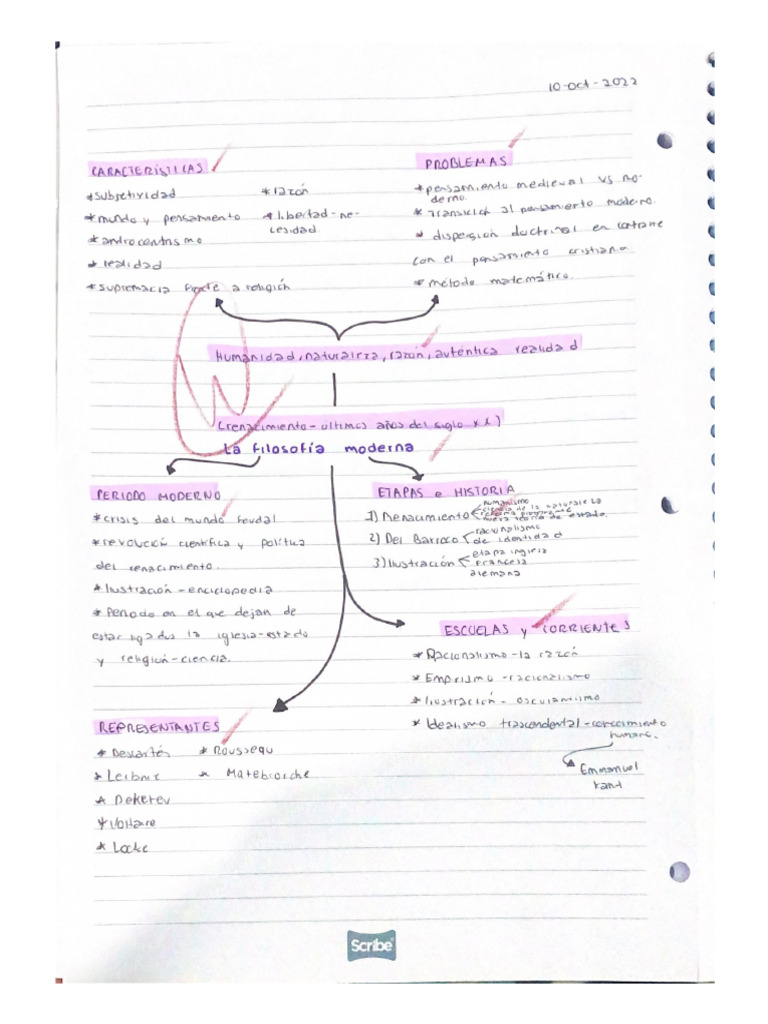 10-oct-2022
CARACTERÍSTICAS
*subjetividad
*mundo y pensamiento
*androcentrismo
*realidad
*supremacia frente a religión
*razón
*libertad-ne-
cesidad.
PROBLEMAS
*pensamiento medieval vs mo-
derno.
*Transición al pensamiento moderno.
* dispersión doctrinal en contraste
con el pensamiento cristiano
*método matemático.
Humanidad, naturaleza, razón, auténtica realidad
(renacimiento-ultimos años del siglo xx)
La filosofía moderna
PERIODO MODERNO
*crisis del mundo feudal
*revolución científica y política
del renacimiento.
*Ilustración-enciclopedia
*Periodo en el que dejan de
estar ligados la iglesia-estado
y religión-ciencia.
ETAPAS e HISTORIA
1) Renacimiento
humanismo
ciencia de la naturaleza
nueva teoría de estado.
2) Del Barroco
racionalismo
de identidad
3) Ilustración
etapa inglesa
francesa
alemana
ESCUELAS y CORRIENTES
*Racionalismo-la razón
*Empirismo-racionalismo
*Ilustración-
*Idealismo trascendental-conocimiento
humano.
Emmanuel
kant
REPRESENTANTES
*Descartes
*Leibniz
*Voltaire
*Locke
*Rousseau
Scribe